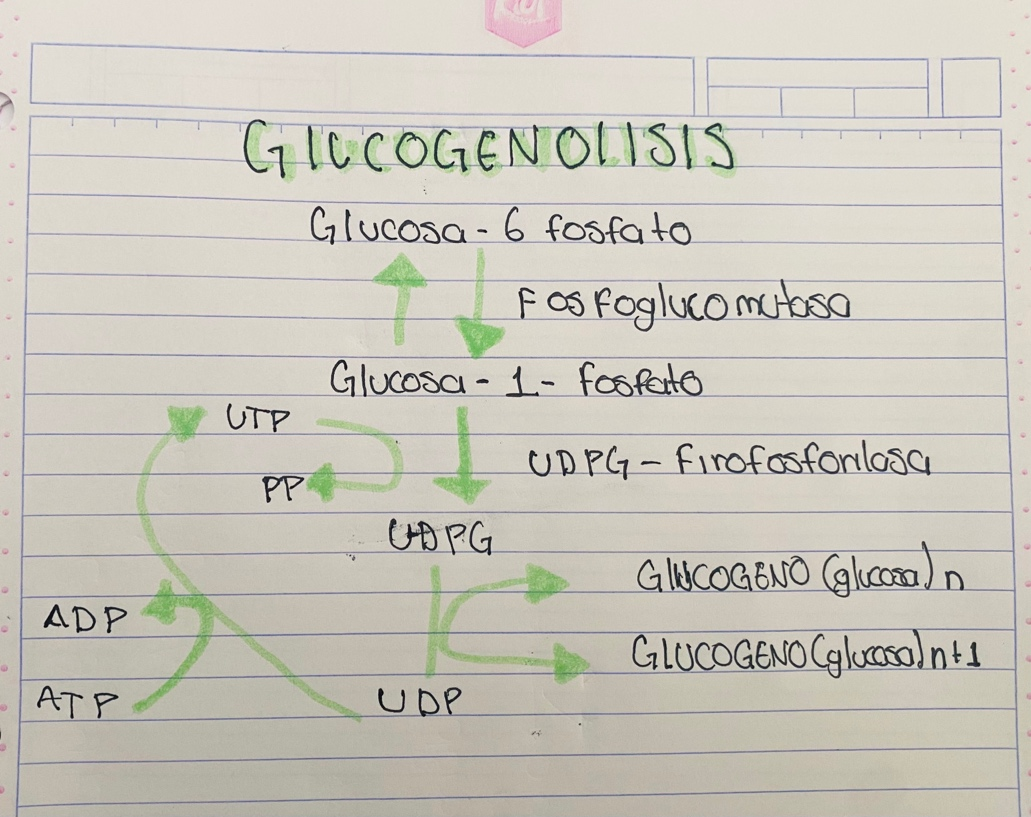 GLUCOGENOLISIS
Glucosa - 6 fosfato
Fosfoglucomutasa
Glucosa - 1 - fosfato
UTP
UDPG - Firofosforilasa
PP
UDPG
GLUCOGENO (glucosa) n
ADP
GLUCOGENO (glucosa) n+1
ATP
UDP